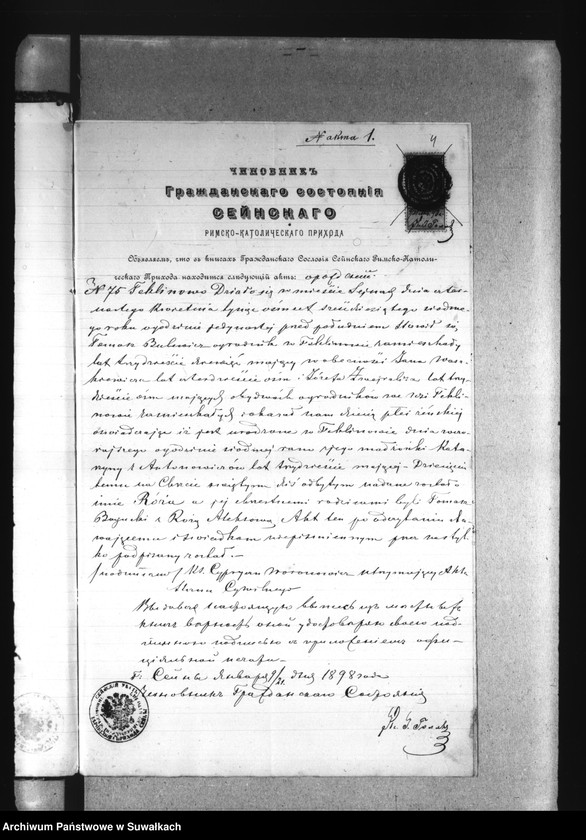 N акта 1.
4
ЧИНОВНИКЪ
Гражданскаго состоянія
СЕЙНСКАГО
РИМСКО-КАТОЛИЧЕСКАГО ПРИХОДА
Объявляетъ, что въ книгахъ Гражданскаго Сословія Сейнскаго Римско-Католи-
ческаго Прихода находится слѣдующій актъ:
N 75 Feklinowo Działo się w mieście Sejnach dnia czter-
nastego Kwietnia tysiąc ośmset sześćdziesiątego siódme-
go roku o godzinie jedynastej przed południem Stawił się
Tomasz ogrodnik w Feklinowie zamieszkały
lat trzydzieści mający w obecności Jana Wasz-
kiewicza lat czterdzieści ośm i Józefa lat trzy-
dzieści ośm mających obydwóch ogrodników we wsi Fekli-
nowie zamieszkałych i okazał nam dziecię płci żeńskiej
oświadczając iż jest urodzone w Feklinowie dnia wczo-
rajszego o godzinie siódmej rano z jego małżonki Kata-
rzyny z Antonowiczów lat trzydzieście mającej. Dziecięciu
temu na Chrzcie świętym dziś odbytym nadane zostało
imie Róża a jej chrzestnemi rodzicami byli Tomasz
i Róża Akt ten po odczytaniu sta-
wającemu i świadkom niepiśmiennym przez nas tyl-
ko podpisany został.
/podpisano/ Ks. Cypryan Woronowicz utrzymujący Akta
Stanu Cywilnego
Выдавая настоящую выпись изъ
вѣрность оной удостовѣряю своею под-
писью съ приложеніемъ оффи-
ціальной печати.
Г. Сейны Января 9/21 дня 1898 года
Чиновникъ Гражданскаго Состоянія
Archiwum Państwowe w Suwałkach